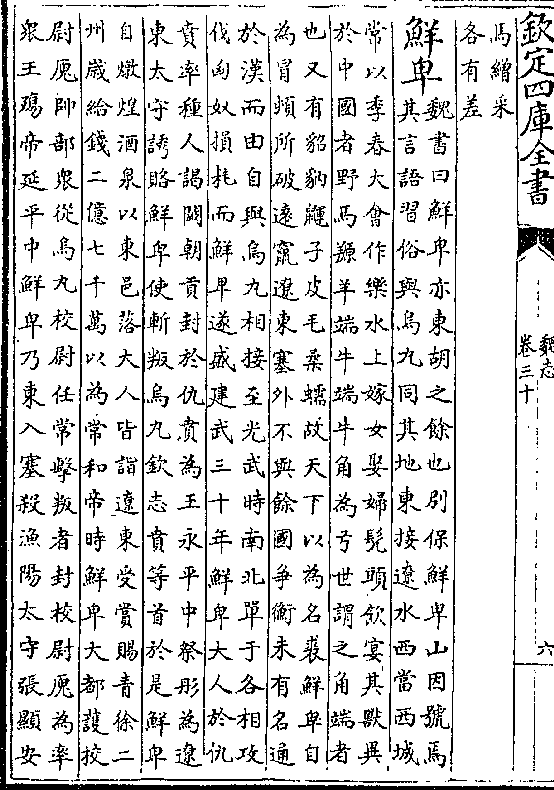 欽定四庫全書
魏志
卷三十
六
馬繒采
各有差
鮮卑
魏書曰鮮卑亦東胡之餘也別保鮮卑山因號焉
其言語習俗與烏丸同其地東接遼水西當西城
常以季春大會作樂水上嫁女娶婦髡頭飲宴其獸異
於中國者野馬羱羊端牛端牛角為弓世謂之角端者
也又有貂豽鼲子皮毛柔蠕故天下以為名裘鮮卑自
為冒頓所破遠竄遼東塞外不與餘國爭衡未有名通
於漢而由自與烏丸相接至光武時南北單于各相攻
伐匈奴損耗而鮮卑遂盛建武三十年鮮卑大人於仇
賁率種人謁闕朝貢封於仇賁為王永平中祭肜為遼
東太守誘賂鮮卑使斬叛烏丸欽志賁等首於是鮮卑
自燉煌酒泉以東邑落大人皆詣遼東受賞賜青徐二
州歲給錢二億七千萬以為常和帝時鮮卑大都護校
尉廆帥部衆從烏丸校尉任常擊叛者封校尉廆為率
衆王殤帝延平中鮮卑乃東入塞殺漁陽太守張顯安